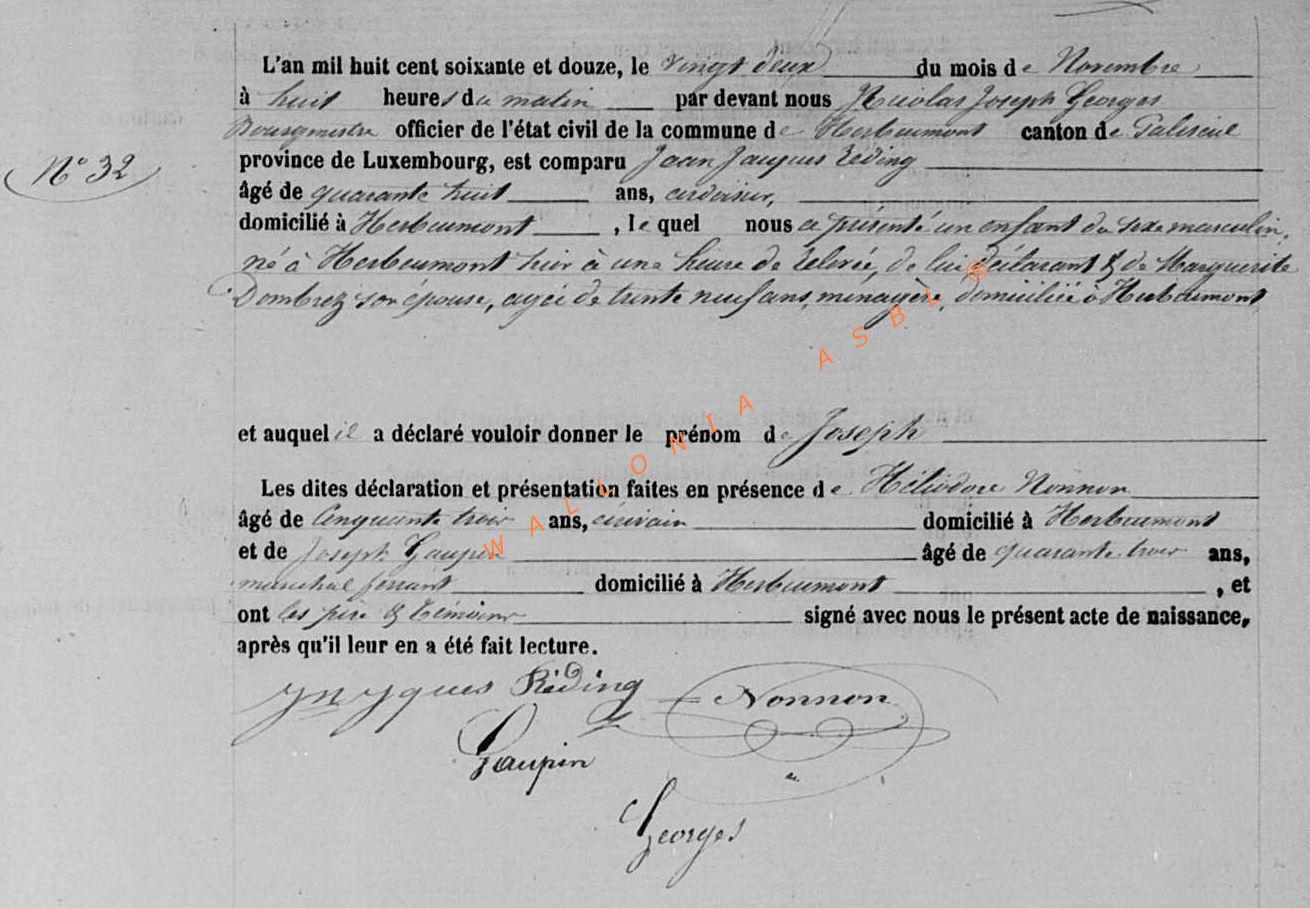 L'an mil huit cent soixante et douze, le vingt deux du mois de Novembre
à huit heures du matin par devant nous Nicolas Joseph Georges
Bourgmestre officier de l'état civil de la commune de Herbeumont canton de Paliseul
N° 32
province de Luxembourg, est comparu Jean Jacques Reding
âgé de quarante huit ans, ardoisier,
domicilié à Herbeumont, le quel nous a présenté un enfant du sexe masculin,
né à Herbeumont hier à une heure de relevée, de lui déclarant & de Marguerite
Dombrez son épouse, agée de trente neuf ans, ménagère, domiciliée à Herbeumont
WALLONIA ASBL ®
et auquel il a déclaré vouloir donner le prénom de Joseph
Les dites déclaration et présentation faites en présence de Héliodore Nonnon
âgé de Cinquante trois ans, écrivain domicilié à Herbeumont
et de Joseph Gaupin âgé de quarante trois ans,
maréchal ferrant domicilié à Herbeumont, et
ont les père & témoins signé avec nous le présent acte de naissance,
après qu'il leur en a été fait lecture.
Réding Nonnon
Gaupin
Georges